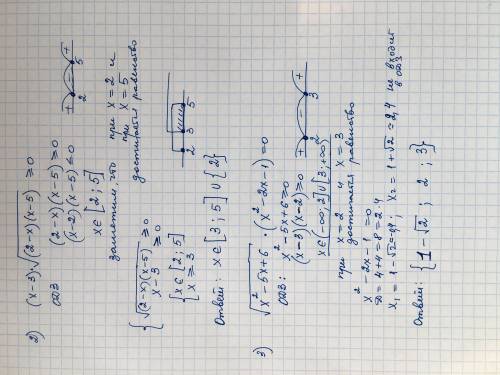 2) (x-3)·√(2-x)(x-5) ≥0
ОДЗ
(2-x)(x-5) ≥0
(x-2)(x-5) ≤0
+ - +
2 5
x∈[2;5]
заметим, что при x=2 и
при x=5
достигается равенство
{ √(2-x)(x-5) ≥0
x-3 ≥0
{ x∈[2;5]
x≥3
2 3 5
Ответ: x∈[3;5]∪{2}
3) √x²-5x+6 · (x²-2x-1)=0
ОДЗ: x²-5x+6≥0
(x-3)(x-2)≥0
+ - +
2 3
x∈(-∞;2]∪[3;+∞)
при x=2 и x=3
достигается равенство
x²-2x-1=0
D=4+4=8=2·4
x₁=1-√2≈ ; x₂=1+√2≈2,4 не входит
в ОДЗ
Ответ: {1-√2 ; 2 ; 3}